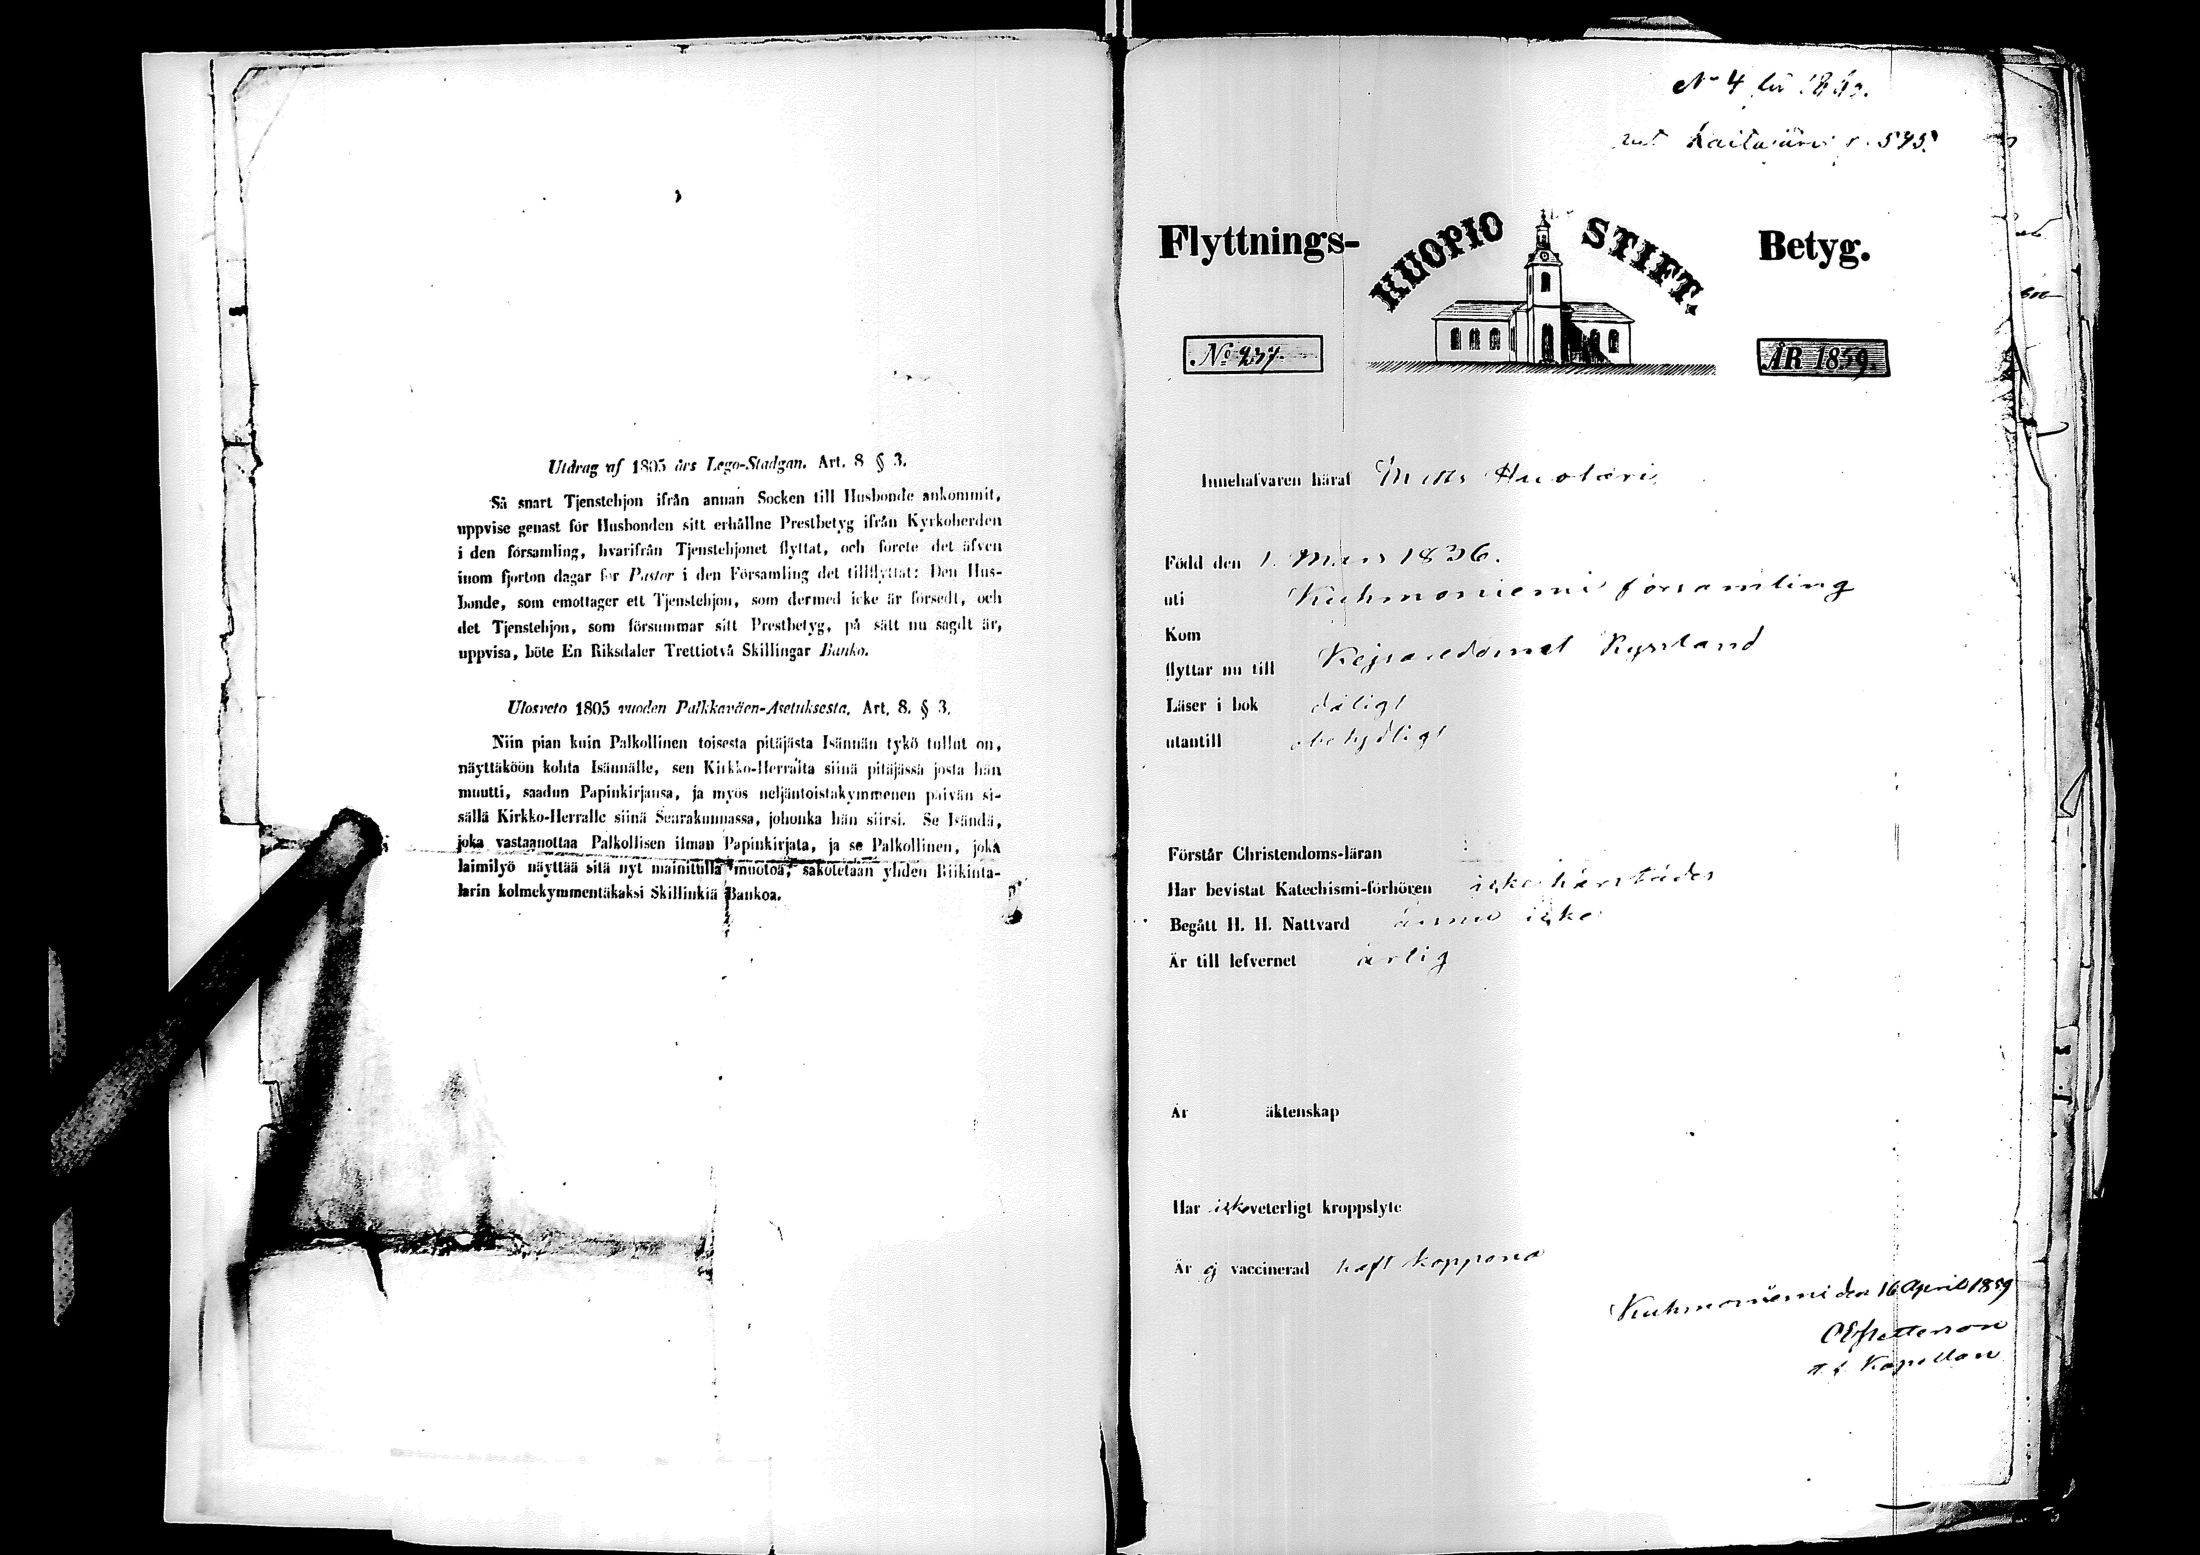 Utdrag af 1805 års Lego-Stadgan. Art. 8 § 3.
Så snart Tjenstehjon ifrån annan Socken till Husbonde ankommit,
uppvise genast för Husbonden sitt erhållne Prestbetyg ifrån Kyrkoherden
i den församling, hvarifrån Tjenstehjonet flyttat, och förete det äfven
inom fjorton dagar för Pastor i den Församling det tillflyttat: Den Hus-
bonde, som emottager ett Tjenstehjon, som dermed icke är försedt, och
det Tjenstehjon, som försummar sitt Prestbetyg, på sätt nu sagdt är,
uppvisa, böte En Riksdaler Trettiotvå Skillingar Banko.
Ulosveto 1805 vuoden Palkkaväen-Asetuksesta. Art. 8. § 3.
Niin pian kuin Palkollinen toisesta pitäjästa Isännän tykö tullut on,
näyttäköön kohta Isännälle, sen Kirkko-Herralta siinä pitäjässä josta hän
muutti, saadun Papinkirjansa, ja myös neljäntoistakymmenen päivän si-
sällä Kirkko-Herralle siinä Seurakunnassa, johonka hän siirsi. Se Isändä,
joka vastaanottaa Palkollisen ilman Papinkirjata, ja se Palkollinen, joka
laimilyö näyttää sitä nyt mainitulla muotoa, sakotetaan yhden Riikinta-
larin kolmekymmentäkaksi Skillinkiä Bankoa.
No 4
575.
Flyttnings- KUOPIO STIFT. Betyg.
No 237. ÅR 1859.
Innehafvaren häraf Matts Huotari
Född den 1. Mars 1836.
uti Kuhmoniemi församling
Kom
flyttar nu till Kejsaredömet Ryssland
Läser i bok dåligt
utantill obetydligt
Förstår Christendoms-läran
Har bevistat Katechismi-förhören icke härstädes
Begått H. H. Nattvard ännu icke
Är till lefvernet ärlig
Är äktenskap
Har icke veterligt kroppslyte
Är ej vaccinerad haft kopporna
Kuhmoniemi den 16 April 1859
Petterson
t. f. Kapellan